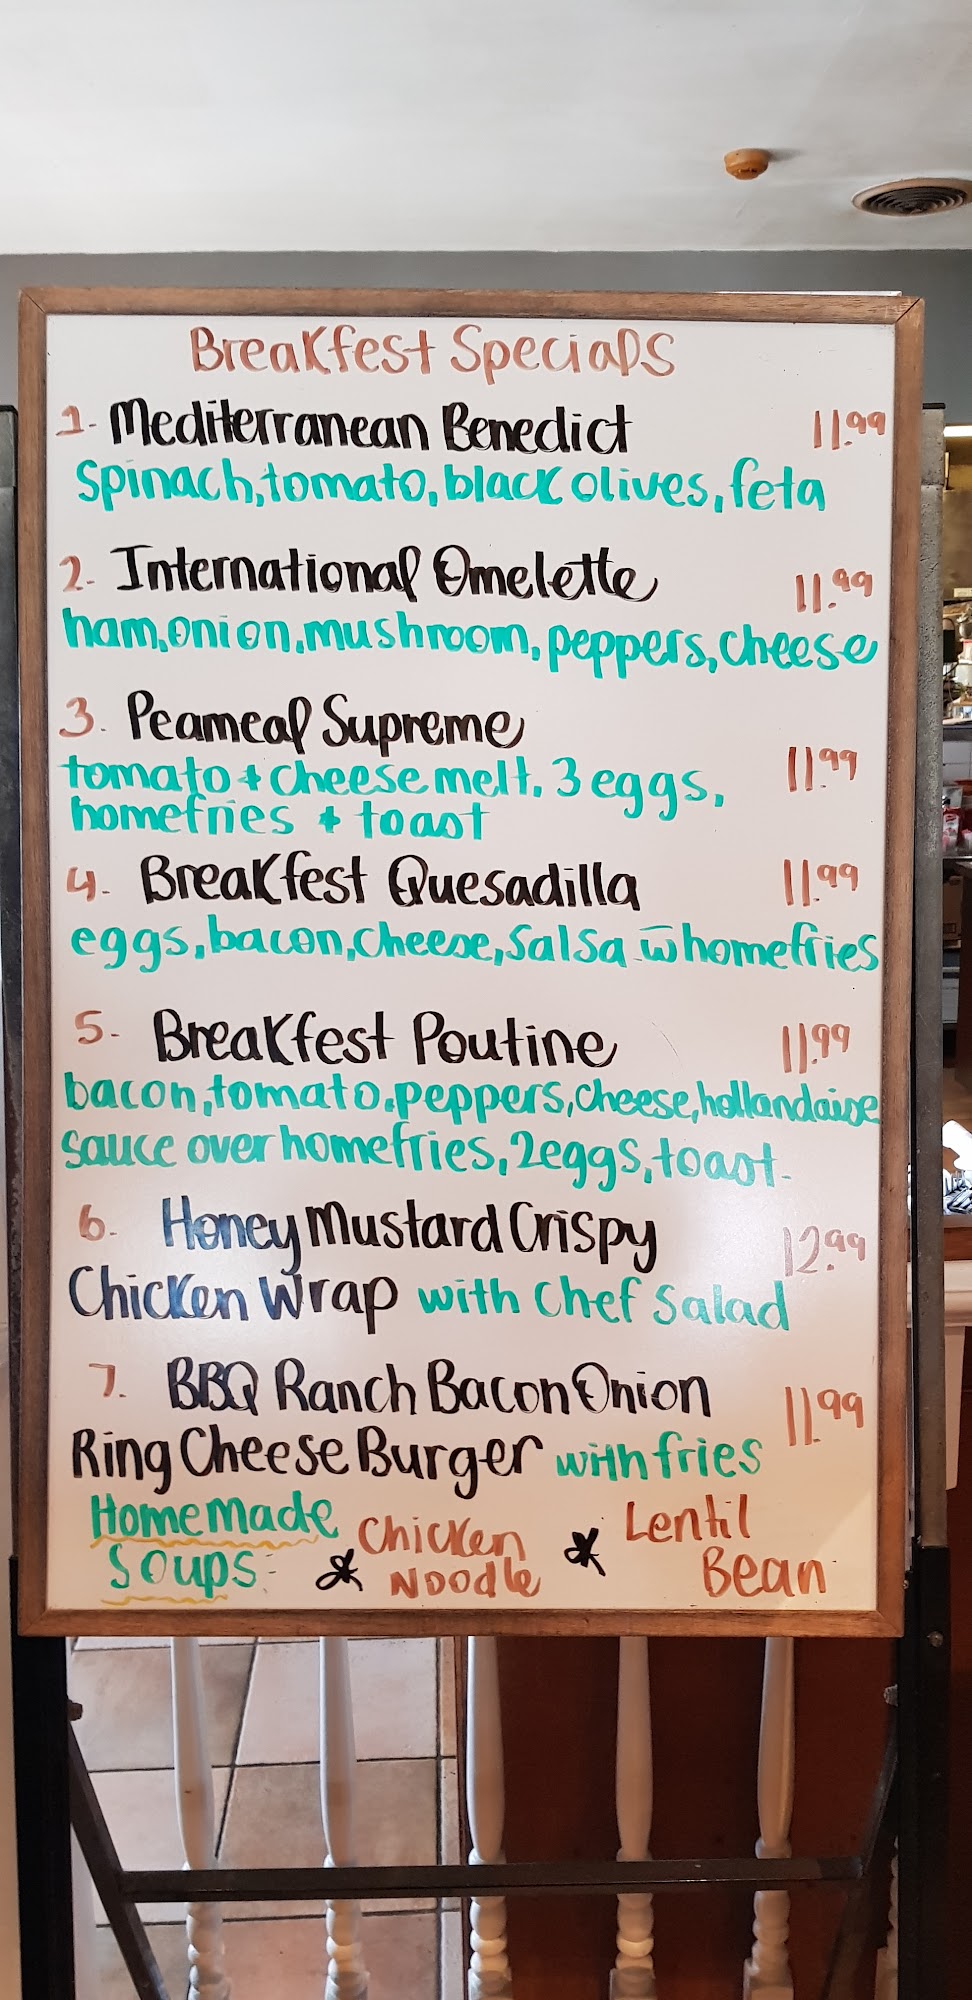 Breakfest Specials
1. Mediterranean Benedict 11.99
Spinach, tomato, black olives, feta
2. International Omelette 11.99
ham, onion, mushroom, peppers, cheese
3. Peameal Supreme
tomato + cheese melt, 3 eggs, 11.99
homefries + toast
4. Breakfest Quesadilla 11.99
eggs, bacon, cheese, salsa w̅ homefries
5. Breakfest Poutine 11.99
bacon, tomato, peppers, cheese, hollandaise
sauce over homefries, 2 eggs, toast.
6. Honey Mustard Crispy 12.99
Chicken Wrap with Chef Salad
7. BBQ Ranch Bacon Onion 11.99
Ring Cheese Burger with fries
Homemade Chicken * Lentil
Soups: * Noodle Bean